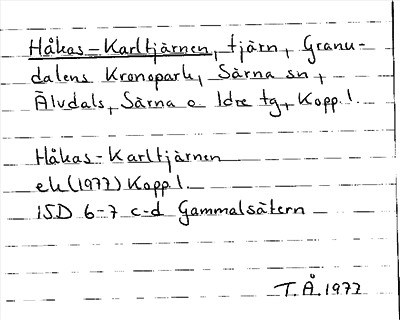 Håkas-Karltjärnen, tjärn, Granu-
dalens Kronopark, Särna sn,
Älvdals, Särna o Idre tg, Kopp. l.
Håkas-Karltjärnen
ek (1977) Kopp l.
15D 6-7 c-d Gammalsätern
T.Å. 1977